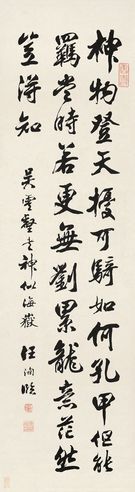 神物登天擾可騎如何孔甲但能
羈當時若更無劉累龍意茫然
豈得知
吳雲壑書神似海嶽 汪洵臨